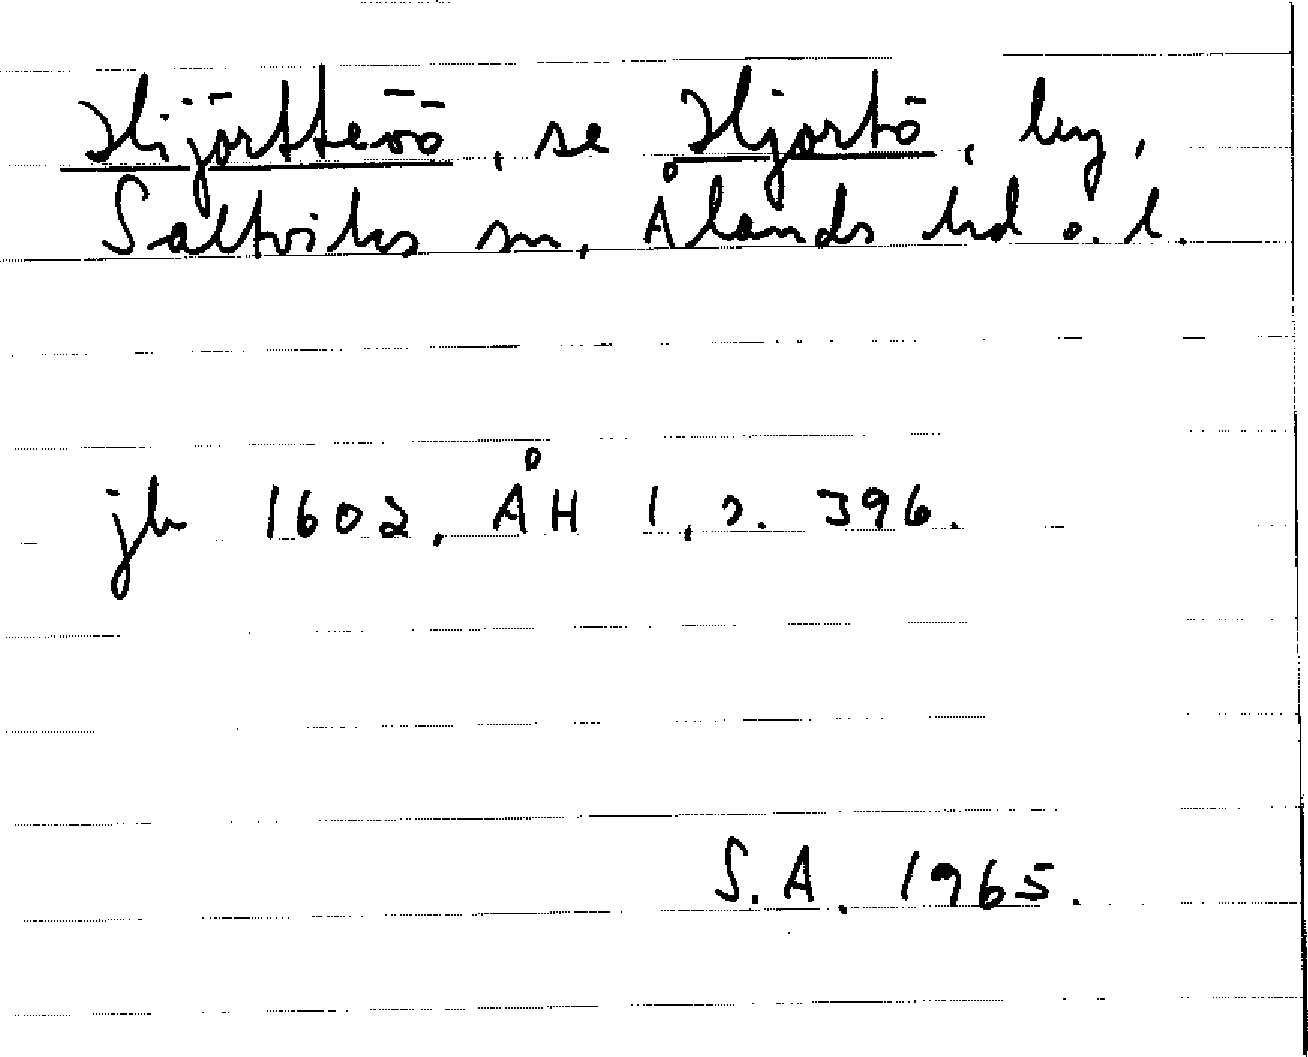 Hijörttezöö, se Hjortö, by,
Saltviks sn, Ålands hd o. l.
jb 1602, ÅH 1, s. 396.
S.A. 1965.